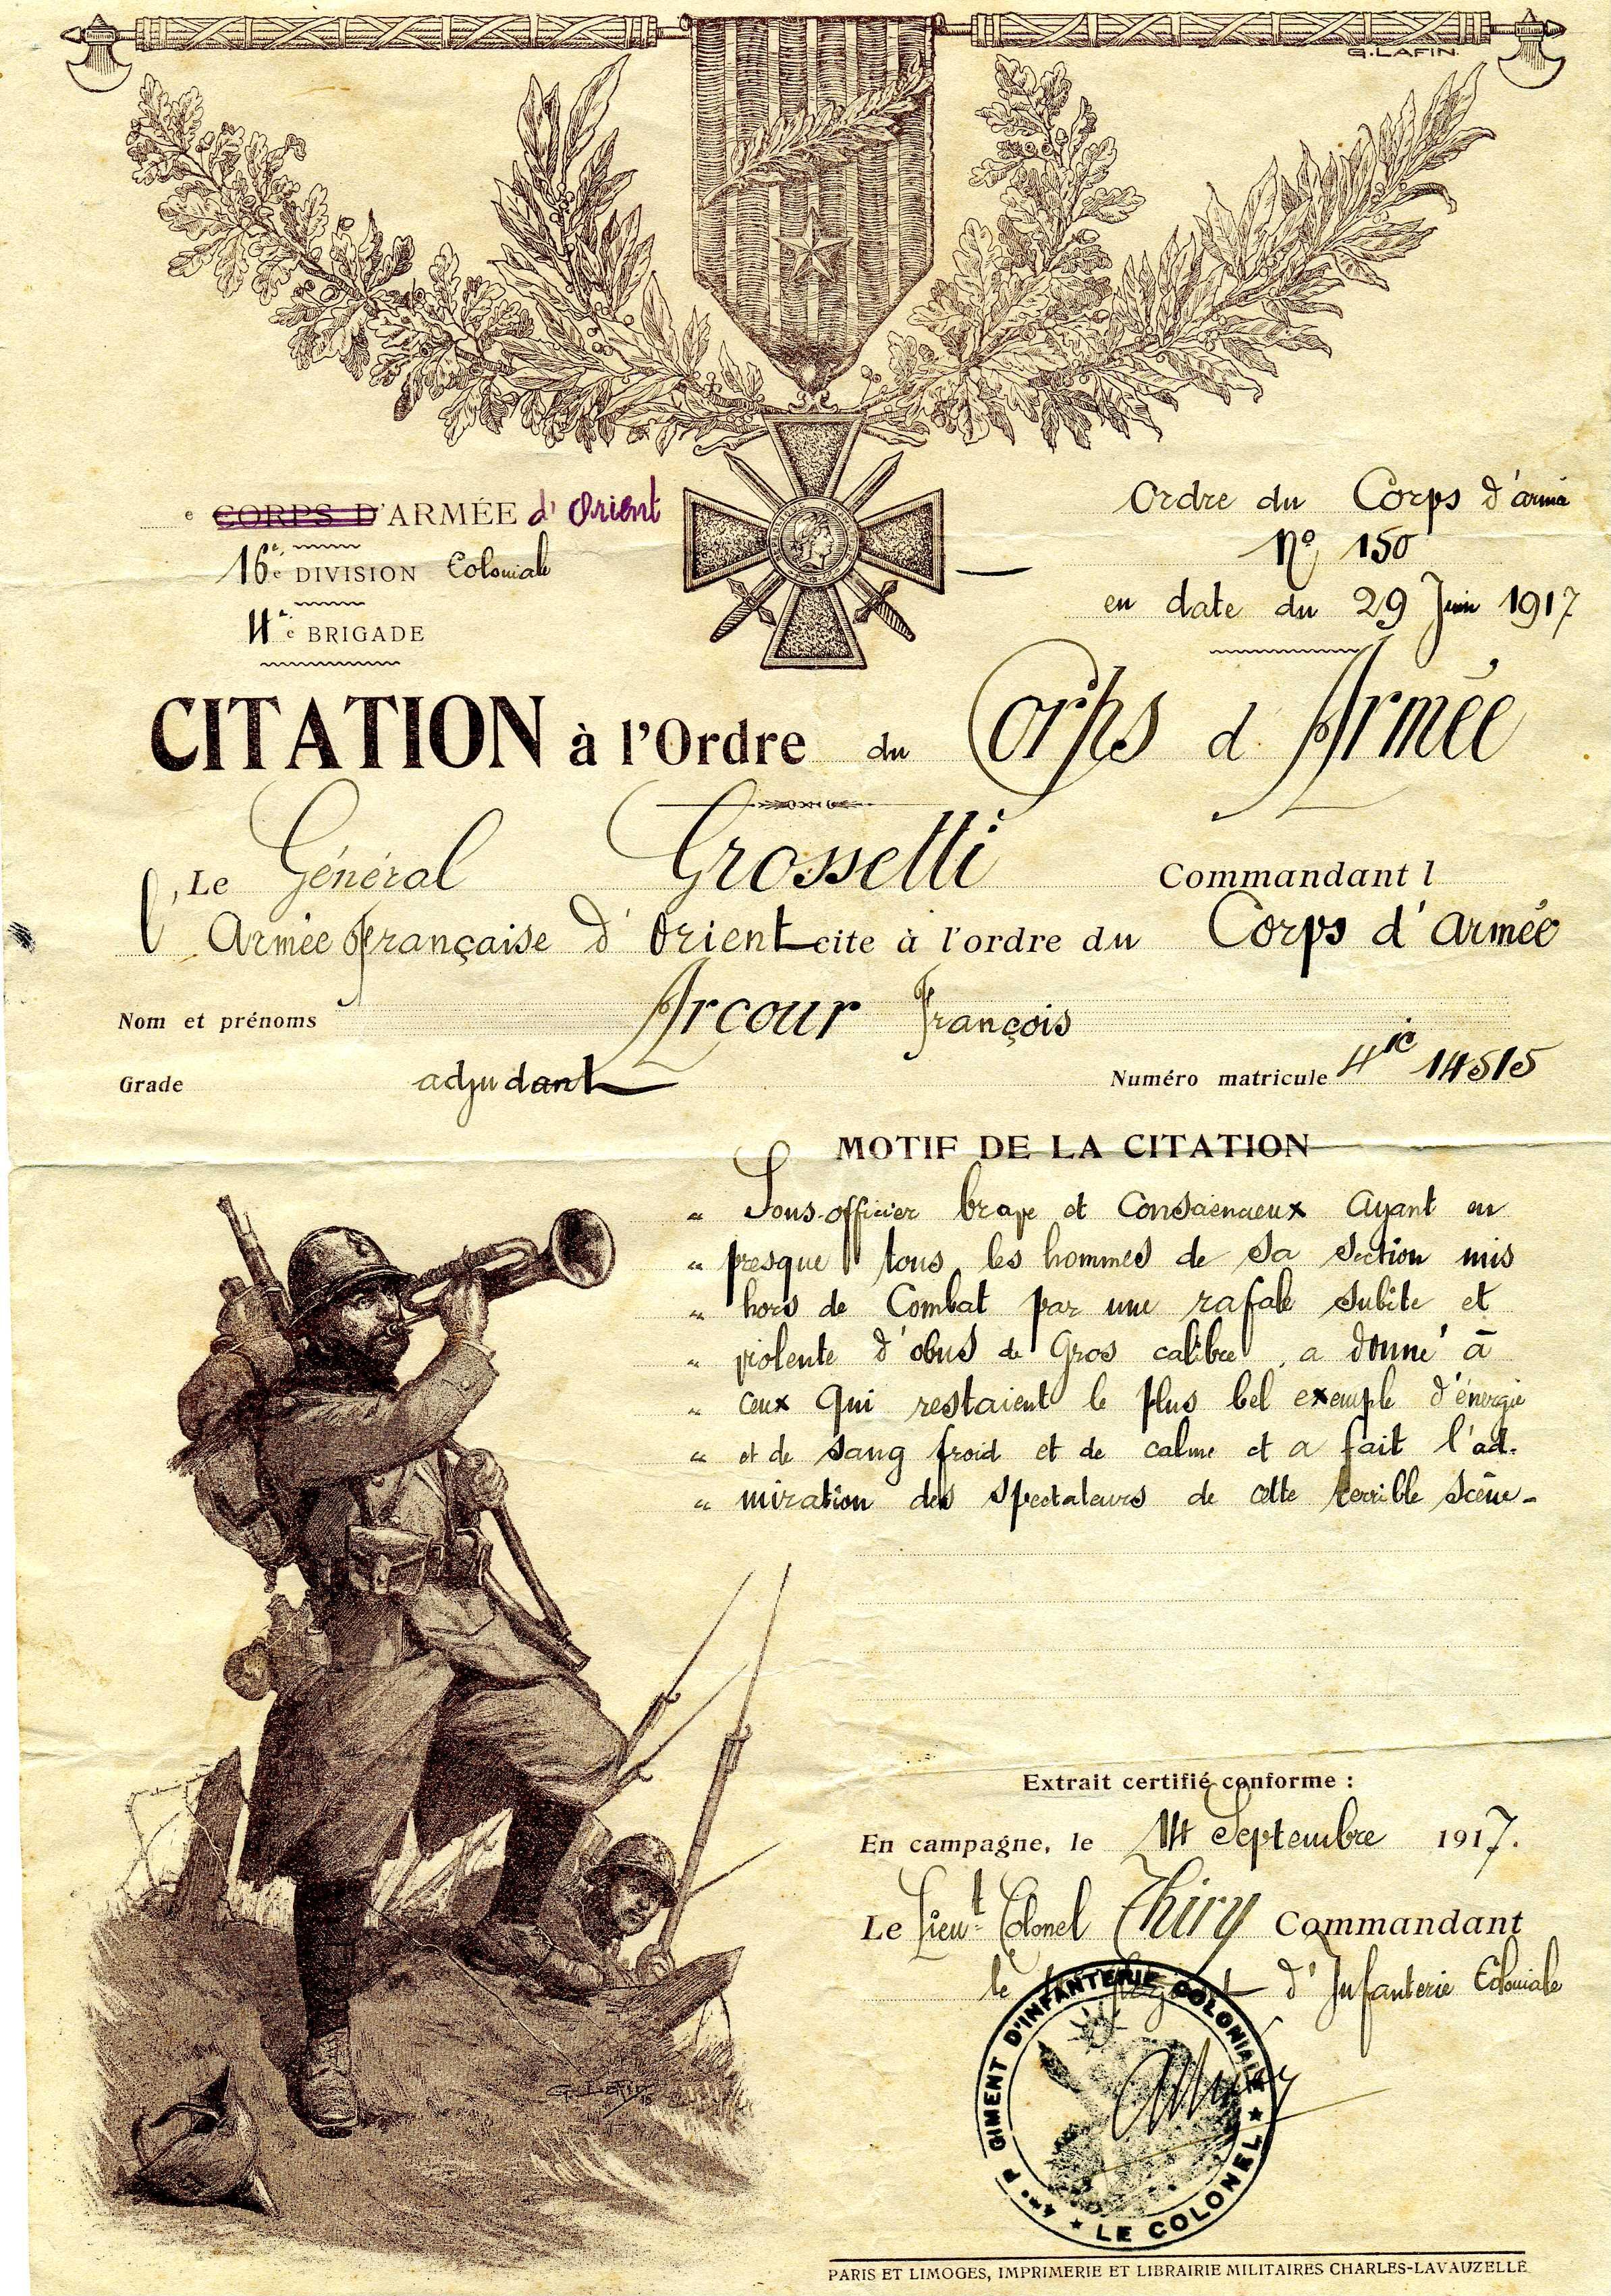 G. LAFIN.
e CORPS D'ARMÉE d'Orient
16e DIVISION Coloniale
4e BRIGADE
Ordre du Corps d'armée
No 150
en date du 29 Juin 1917
CITATION à l'Ordre du Corps d'Armée
Le Général Grossetti Commandant l
l'Armée française d'Orient cite à l'ordre du Corps d'Armée
Nom et prénoms Arcour François
Grade adjudant Numéro matricule 14515
MOTIF DE LA CITATION
" Sous-officier brave et Consciencieux Ayant eu
" presque tous les hommes de sa section mis
" hors de Combat par une rafale subite et
" violente d'obus de Gros calibre, a donné à
" ceux qui restaient le plus bel exemple d'énergie
" et de sang froid et de calme et a fait l'ad-
" miration des spectateurs de cette terrible scène-
Extrait certifié conforme :
En campagne, le 14 Septembre 1917.
Le Lieut Colonel Thiry Commandant
le Régiment d'Infanterie Coloniale
GIMENT D'INFANTERIE COLONIALE
LE COLONEL
G. LAFIN
PARIS ET LIMOGES, IMPRIMERIE ET LIBRAIRIE MILITAIRES CHARLES-LAVAUZELLE